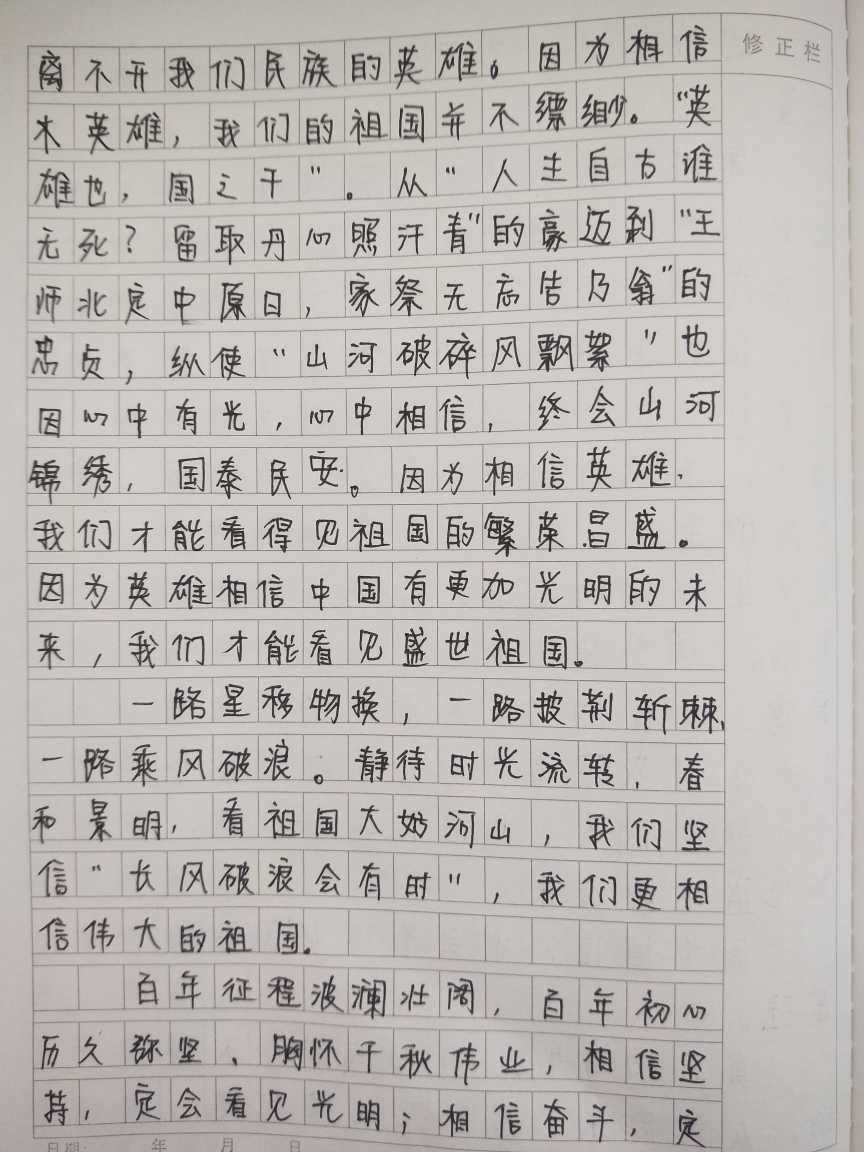 离不开我们民族的英雄。因为相信
修正栏
木英雄，我们的祖国并不缥缈。“英
雄也，国之干”。从“人生自古谁
无死？留取丹心照汗青”的豪迈到“王
师北定中原日，家祭无忘告乃翁”的
忠贞，纵使“山河破碎风飘絮”也
因心中有光，心中相信，终会山河
锦绣，国泰民安。因为相信英雄，
我们才能看得见祖国的繁荣昌盛。
因为英雄相信中国有更加光明的未
来，我们才能看见盛世祖国。
一路星移物换，一路披荆斩棘，
一路乘风破浪。静待时光流转，春
和景明，看祖国大好河山，我们坚
信“长风破浪会有时”，我们更相
信伟大的祖国。
百年征程波澜壮阔，百年初心
历久弥坚、胸怀千秋伟业，相信坚
持，定会看见光明；相信奋斗，定
日期： 年 月 日